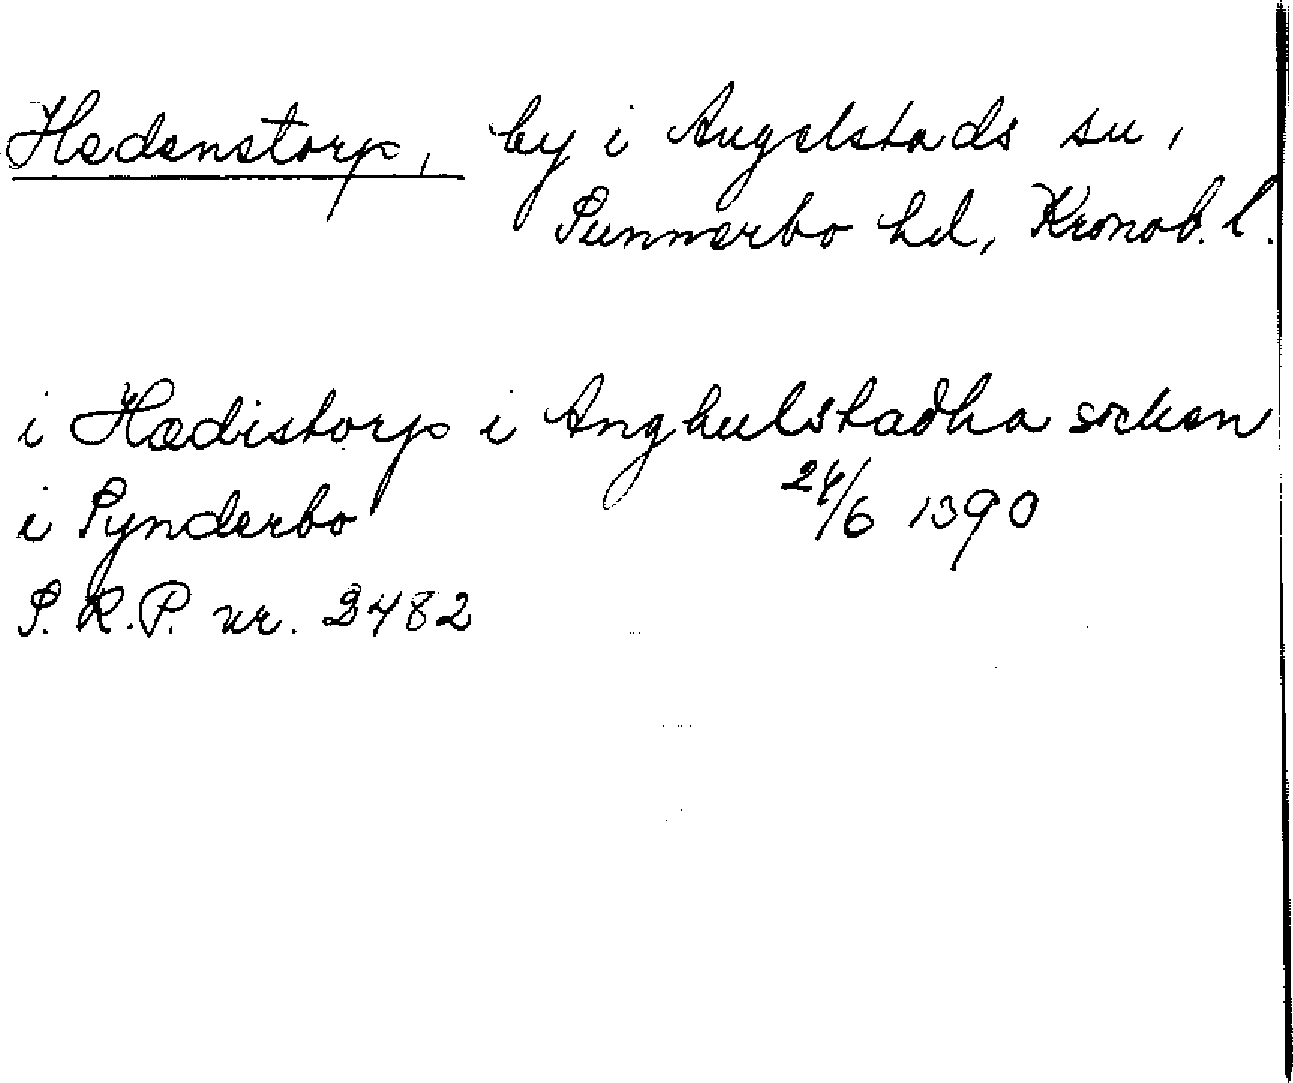 Hedenstorp, by i Angelstads sn,
Sunnerbo hd, Kronob. l.
i Hædistorp i Anghulstadha soken
i Synderbo 24/6 1390
S. R. P. nr. 2482